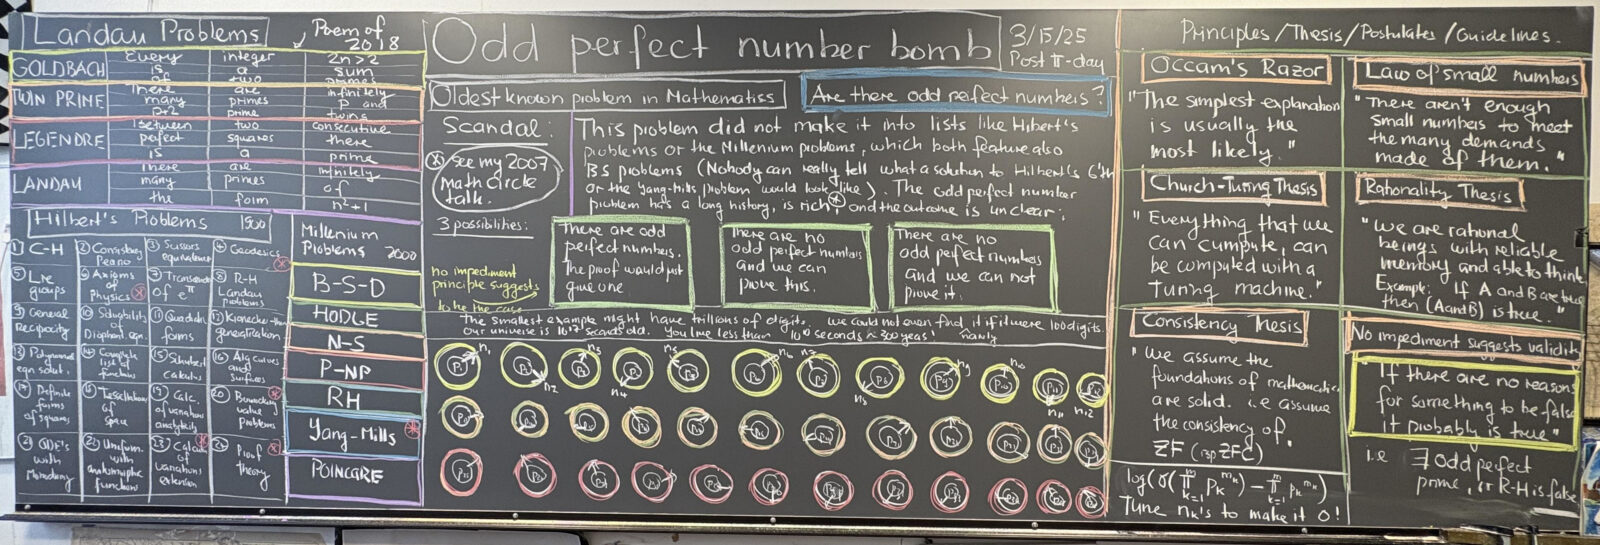 Landau Problems
Poem of
2018
GOLDBACH
Every integer 2n>2
is a sum
of two primes
TWIN PRINE
There are infinitely
many primes p and
p+2 prime twins
LEGENDRE
Between two consecutive
perfect squares there
is a prime
LANDAU
There are infinitely
many primes of
the form n²+1
Hilbert's Poblems 1900
1 C-H
2 Consistency Peano
3 Scissors equivalence
4 Geodesics
5 Lie groups
6 Axioms of Physics
7 Transcend of e^π
8 R-H Landau problems
9 General Reciprocity
10 Solvability of Diophant. eqn.
11 Quadratic forms
12 Kronecker thm generalization
13 Polynomial eqn solut.
14 Complete list of functions
15 Schubert Calculus
16 Alg curves and surfaces
17 Definite forms of squares
18 Tessellations of space
19 Calc. of variations analyticity
20 Boundary value problems
21 ODE's with Monodromy
22 Uniform. with automorphic functions
23 Calculus of variations extension
24 Proof theory
Millenium
Ploblems 2000
B-S-D
HODGE
N-S
P-NP
RH
Yang-Mills
POINCARE
Odd perfect number bomb
3/15/25
Post π-day
Oldest known problem in Mathematics
Are there odd perfect numbers?
Scandal:
see my 2007
Math circle
talk.
This problem did not make it into lists like Hilbert's
problems or the Millenium problems, which both feature also
BS problems (Nobody can really tell what a solution to Hilbert's 6'th
or the Yang-Mills problem would look like). The odd perfect number
problem has a long history, is rich, and the outcome is unclear:
3 possibilities:
There are odd
perfect numbers.
The proof would just
give one
There are no
odd perfect numbers
and we can
prove this.
There are no
odd perfect numbers
and we can not
prove it.
no impediment
principle suggests
to be the case
The smallest example might have trillions of digits. we could not even find it if it were 100 digits.
Our universe is 10^17 seconds old. You live less than 10^10 seconds ≈ 300 years! nainly
Principles/Thesis/Postulates/Guidelines.
Occam's Razor
"The simplest explanation
is usually the
most likely."
Law of small numbers
"There aren't enough
small numbers to meet
the many demands
made of them."
Church-Turing Thesis
"Everything that we
can cumpute, can
be computed with a
Turing machine."
Rationality Thesis
"We are rational
beings with reliable
memory and able to think
Example: If A and B are true
then (A and B) is true."
Consistency Thesis
"we assume the
foundations of mathematics
are solid. i.e assume
the consistency of
ZF (rsp ZFC)
No impediment suggests validity
"If there are no reasons
for something to be false
it probably is true"
i.e ∃ Odd perfect
prime, or R-H is false
log(σ(∏ p_k^m_k) - ∏ p_k^m_k)
Tune n_k's to make it 0!